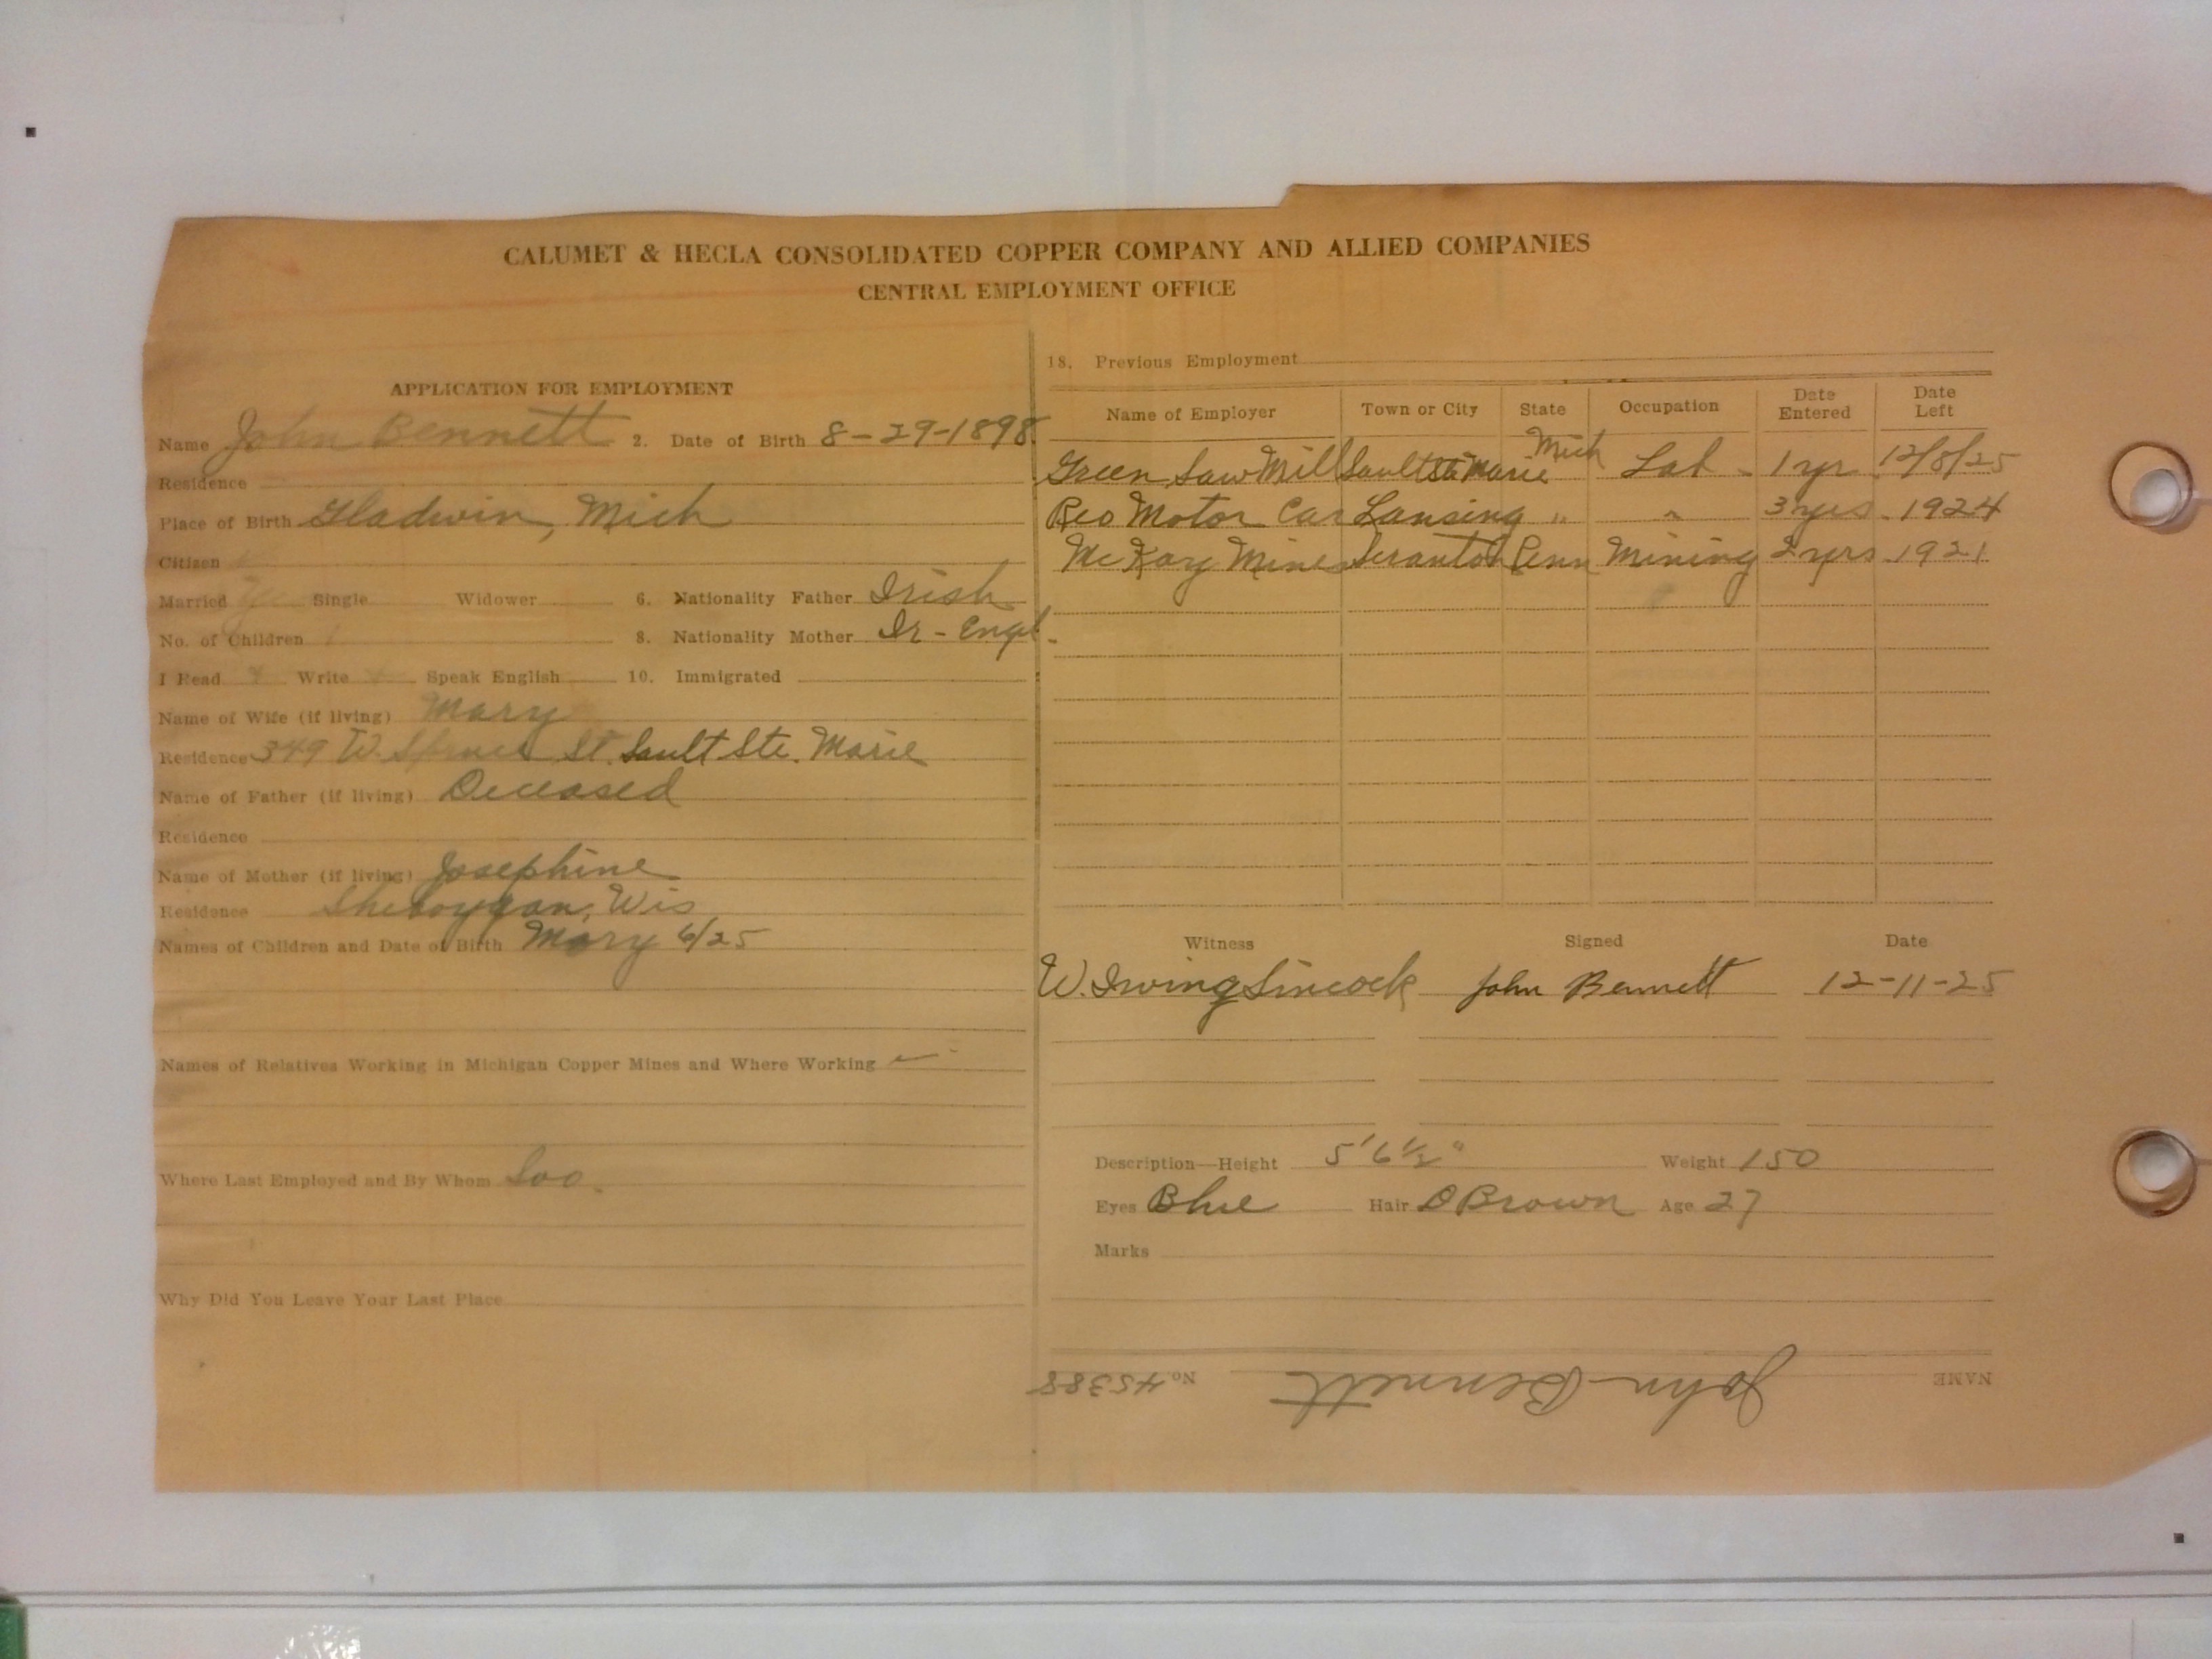 CALUMET & HECLA CONSOLIDATED COPPER COMPANY AND ALLIED COMPANIES
CENTRAL EMPLOYMENT OFFICE
APPLICATION FOR EMPLOYMENT
Name John Bennett 2. Date of Birth 8-29-1898
Residence
Place of Birth Gladwin, Mich
Citizen
Married Yes Single Widower 6. Nationality Father Irish
No. of Children 1 8. Nationality Mother Ir - Engl.
I Read Write Speak English 10. Immigrated
Name of Wife (if living) Mary
Residence 349 W. Spruce St. Sault Ste. Marie
Name of Father (if living) Deceased
Residence
Name of Mother (if living) Josephine
Residence Sheboygan, Wis
Names of Children and Date of Birth Mary 6/25
Names of Relatives Working in Michigan Copper Mines and Where Working
Where Last Employed and By Whom Soo.
Why Did You Leave Your Last Place
18. Previous Employment
Name of Employer Town or City State Occupation Date Entered Date Left
Green Saw Mill Sault Ste Marie Mich Lab - 1 yr 12/8/25
Reo Motor Car Lansing " " 3 yrs. 1924
McKay Mines Scranton Penn Mining 2 yrs. 1921
Witness Signed Date
W. Irving Sincock John Bennett 12-11-25
Description—Height 5' 6 1/2" Weight 150
Eyes Blue Hair D Brown Age 27
Marks
NAME John Bennett No. 45388